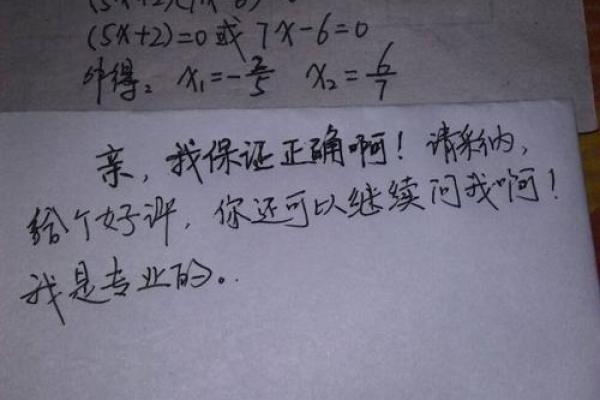 (5x+2)(7x-6)=0
(5x+2)=0或 7x-6=0
解得: x₁=-2/5 x₂=6/7
亲, 我保证正确啊! 请采纳,
给个好评, 你还可以继续问我啊!
我是专业的。